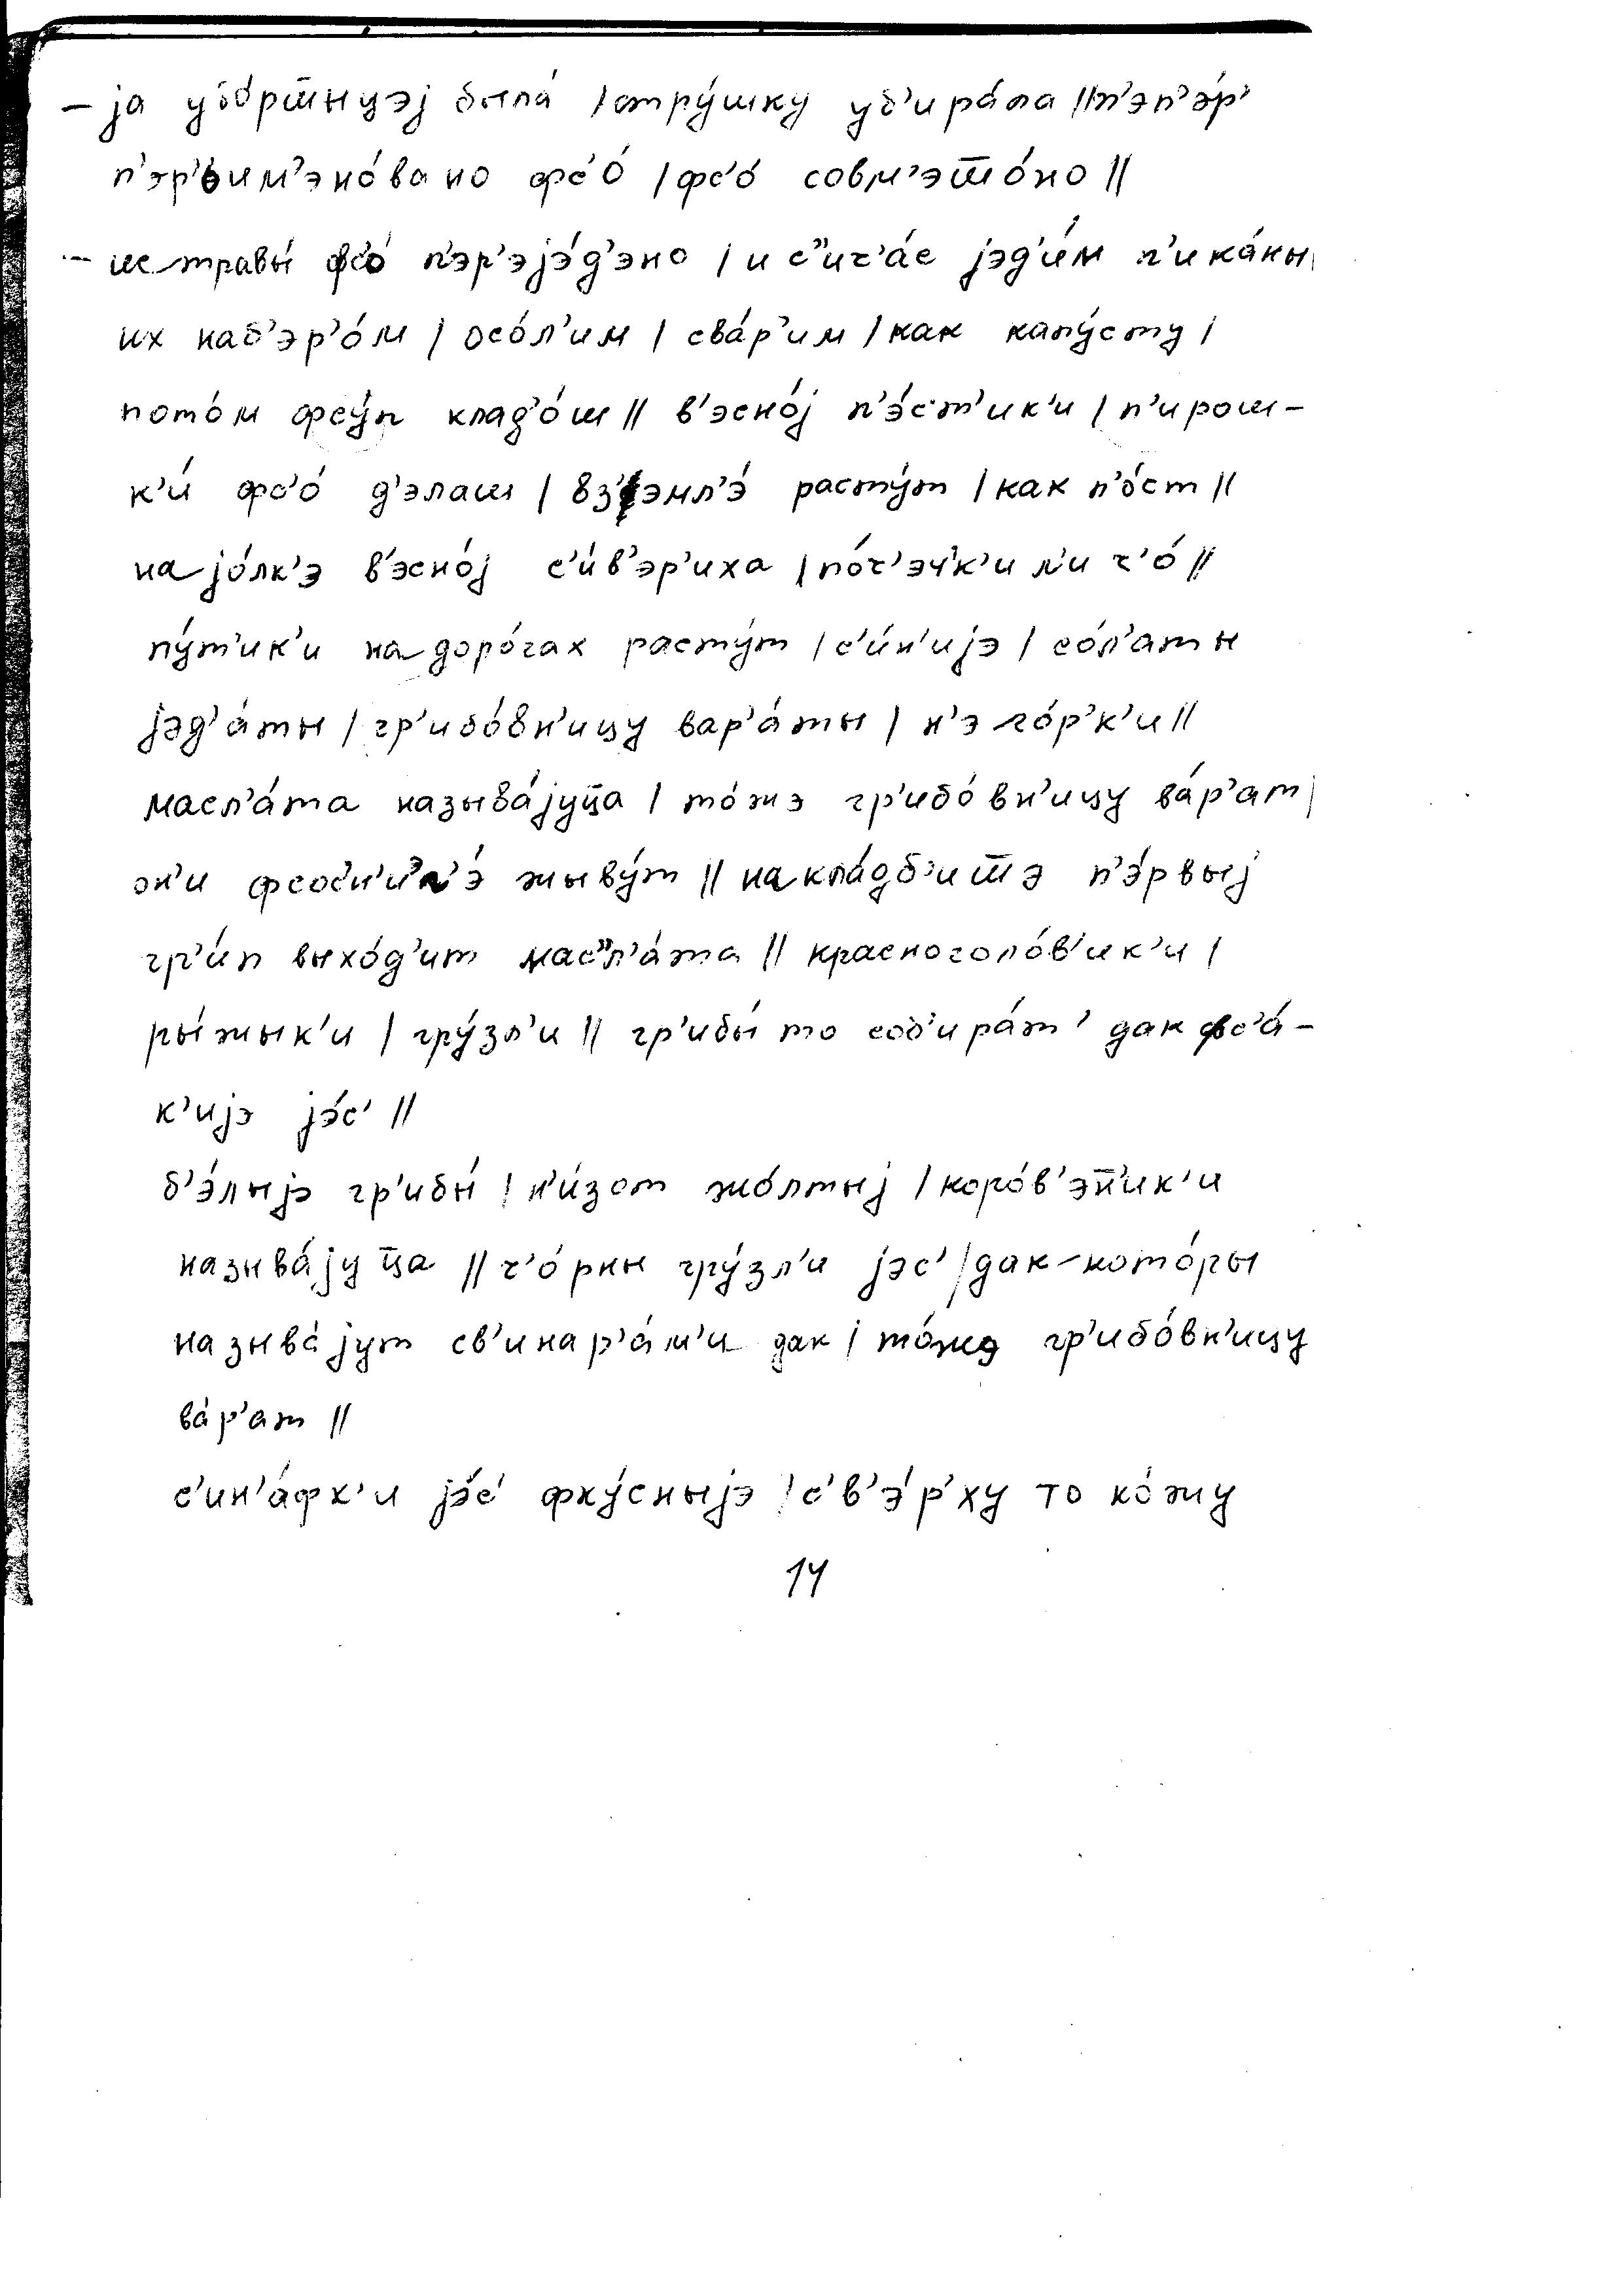 – jа убо́рш̅ыцэj была́ / стру́шку уб'ира́ла // т'эп'э́р'
п'эр'ьим'эно́вано фс'о́ / фс'о́ совм'эш̅о́но //
– ис травы́ фс'о́ п'эр'эjэ́д'эно / и с"ич'а́с jэд'и́м п'ика́ны /
их наб'эр'о́м / осо́л'им / сва́р'им / как капу́сту /
пото́м фсу́п клад'о́ш // в'эсно́j п'э́с'т'ик'и / п'ирош–
к'и́ фс'о́ д'элаш / вз'эмл'э́ расту́т / как п'о́ст //
на jо́лк'э в'эсно́j с'и́в'эр'иха / по́ч'эчк'и л'и ч'о́ //
пу́т'ик'и на доро́гах расту́т / с'и́н'иjэ / со́л'аты
jэд'а́ты / гр'ибо́вн'ицу вар'а́ты / н'э го́р'к'и //
масл'а́та называ́jуц̅а / то́жэ гр'ибо́вн'ицу ва́р'ат /
он'и фсос'н'ик'э́ жыву́т // на кла́дб'иш̅э п'э́рвыj
гр'и́п выхо́д'ит мас"л'а́та // красноголо́в'ик'и /
ры́жык'и / гру́зл'и // гр'ибы́ то соб'ира́т' дак фс'а́–
к'иjэ jэ́с' //
б'э́лыjэ гр'ибы́ / н'и́зот жо́лтыj / коро́в'эт̅'ик'и
называ́jуц̅а // ч'о́рны гру́зл'и jэс' / дак – кото́ры
называ́jут св'инар'а́м'и дак / то́жэ гр'ибо́вн'ицу
ва́р'ат //
с'ин'а́фк'и jэ́с' фку́сныjэ / с'в'э́р'ху то ко́жу
14